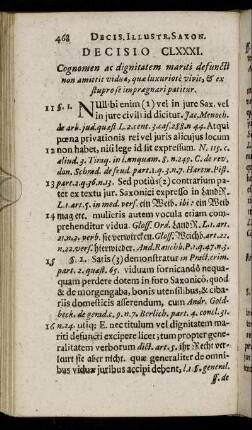 468 DECIS. ILLUSTR. SAXON.
DECISIO CLXXXI.
Cognomen ac dignitatem mariti defuncti
non amittit vidua, quæ luxuriosè vivit, & ex
stupro se imprægnari patitur.
11 §. 1. Nullibi enim (1) vel in jure Sax. vel
in jure civili id dicitur. Jac. Menoch.
de arb. jud. quæst. L. 2. cent. 3. cas. 288. n. 44. Atqui
pœna privationis rei vel juris alicujus locum
12 non habet, nisi lege id sit expressum. N. 115. c.
aliud. 3. Tiraq. in l. unquam. §. n. 249. C. de rev.
don. Schned. de feud. part. 2. q. 3. n. 7. Hartm. Pist.
13 part. 2. q. 36. n. 13. Sed potiùs (2) contrarium pa-
tet ex textu jur. Saxonici expresso in Land R.
L. 1. art. 5. in med. vers. ein Weib. ibi: ein Weib
14 mag etc. mulieris autem vocula etiam com-
prehenditur vidua. Gloss. Ord. Land R. L. 1. art.
21. n. 3. verb. sie verwircket es. Gloss. Weichb. art. 22.
n. 22. vers. hierwider. And. Rauchb. P. 1. q. 47. n. 3.
15 §. 2. Satis (3) demonstratur in Pract. crim.
part. 2. quæst. 65. viduam fornicando nequa-
quam perdere dotem in foro Saxonico, quod
& de morgengaba, bonis utensilibus, & ciba-
riis domesticis asserendum, cum Andr. Gold-
beck. de gerada. q. n. 7. Berlich. part. 4. concl. 31.
16 n. 24. utiq; E. nec titulum vel dignitatem ma-
riti defuncti excipere licet; tum propter gene-
ralitatem verborum dict. art. 5. ihr Recht ver-
leurt sie aber nicht. quæ generaliter de omni-
bus viduæ juribus accipi debent, l. 1. §. general.
ff. de